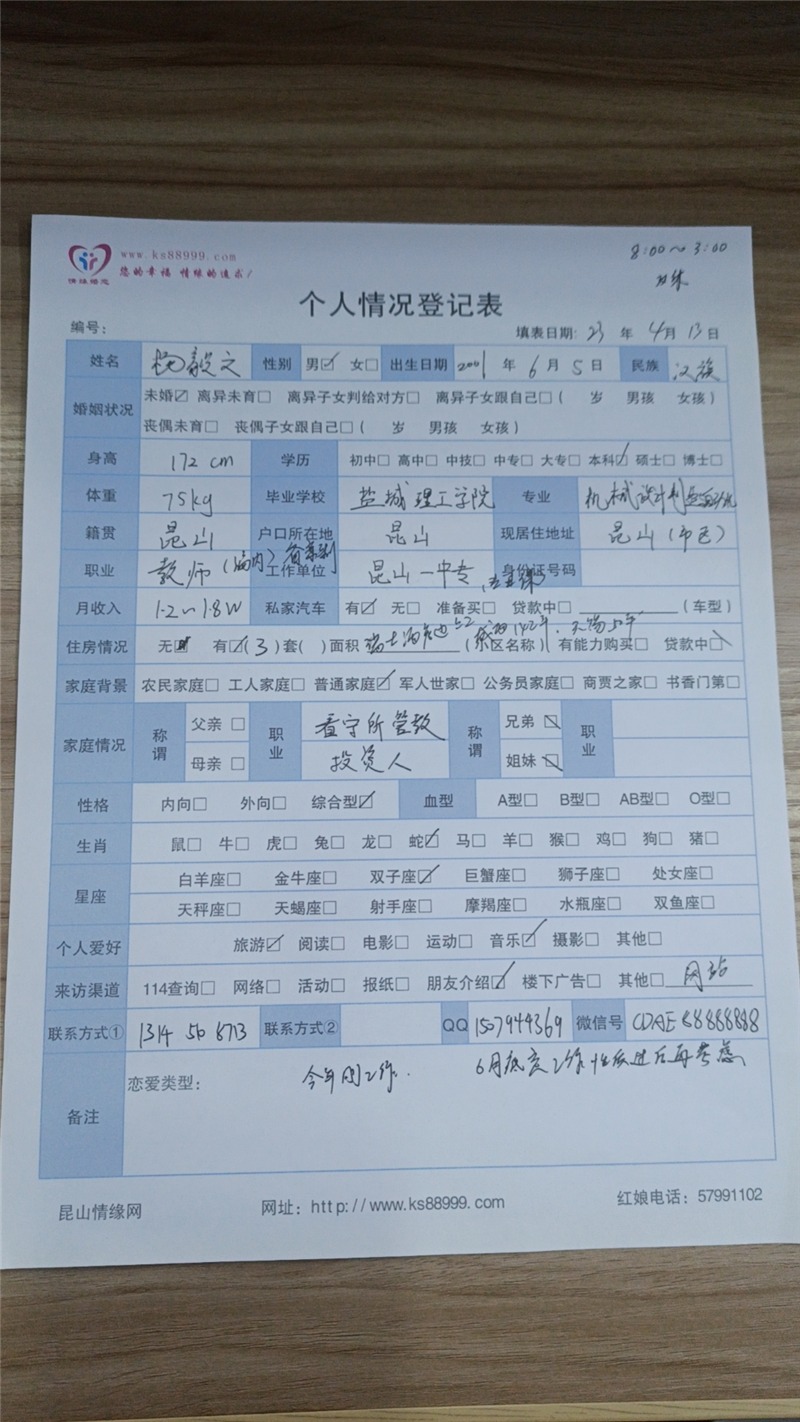 www.ks88999.com
您的幸福 情缘的追求!
情缘婚恋
8:00~3:00
个人情况登记表
编号:
填表日期: 23 年 4月 13日
姓名 杨毅文 性别 男☑ 女□ 出生日期 2001 年 6 月 5 日 民族 汉族
婚姻状况 未婚☑ 离异未育□ 离异子女判给对方□ 离异子女跟自己□( 岁 男孩 女孩)
丧偶未育□ 丧偶子女跟自己□( 岁 男孩 女孩)
身高 172 cm 学历 初中□ 高中□ 中技□ 中专□ 大专□ 本科☑ 硕士□ 博士□
体重 75kg 毕业学校 盐城理工学院 专业 机械设计制造
籍贯 昆山 户口所在地 昆山 现居住地址 昆山(市区)
职业 教师(编内) 工作单位 昆山一中专 身份证号码
月收入 1.2~1.8W 私家汽车 有☑ 无□ 准备买□ 贷款中□ (车型)
住房情况 无 有☑(3)套( )面积 (小区名称) 有能力购买□ 贷款中□
家庭背景 农民家庭□ 工人家庭□ 普通家庭☑ 军人世家□ 公务员家庭□ 商贾之家□ 书香门第□
家庭情况 称谓 父亲 □ 职业 看守所管教 称谓 兄弟 职业
母亲 □ 投资人 姐妹
性格 内向□ 外向□ 综合型☑ 血型 A型□ B型□ AB型□ O型□
生肖 鼠□ 牛□ 虎□ 兔□ 龙□ 蛇☑ 马□ 羊□ 猴□ 鸡□ 狗□ 猪□
星座 白羊座□ 金牛座□ 双子座☑ 巨蟹座□ 狮子座□ 处女座□
天秤座□ 天蝎座□ 射手座□ 摩羯座□ 水瓶座□ 双鱼座□
个人爱好 旅游☑ 阅读□ 电影□ 运动□ 音乐☑ 摄影□ 其他□
来访渠道 114查询□ 网络□ 活动□ 报纸□ 朋友介绍☑ 楼下广告□ 其他□ 网站
联系方式① 1314 5b 8713 联系方式② QQ 1507944369 微信号 CDAE88888888
备注 恋爱类型: 今年 工作. 6月底 工作 过后再考虑
昆山情缘网 网址: http://www.ks88999.com 红娘电话: 57991102